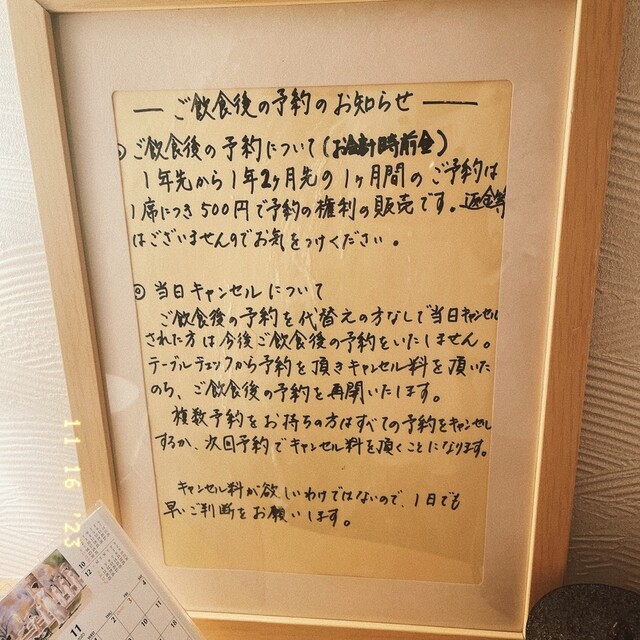 ご飲食後の予約のお知らせ
◎ ご飲食後の予約について(お会計時前金)
1年先から1年2ヶ月先の1ヶ月間のご予約は
1席につき500円で予約の権利の販売です。返金等
はございませんのでお気をつけください。
◎ 当日キャンセルについて
ご飲食後の予約を代替えの方なしで当日キャンセル
された方は今後ご飲食後の予約をいたしません。
テーブルチェックから予約を頂きキャンセル料を頂いた
のち、ご飲食後の予約を再開いたします。
複数予約をお持ちの方はすべての予約をキャンセル
するか、次回予約でキャンセル料を頂くことになります。
キャンセル料が欲しいわけではないので、1日でも
早いご判断をお願いします。
11 16 '23
10
12
11